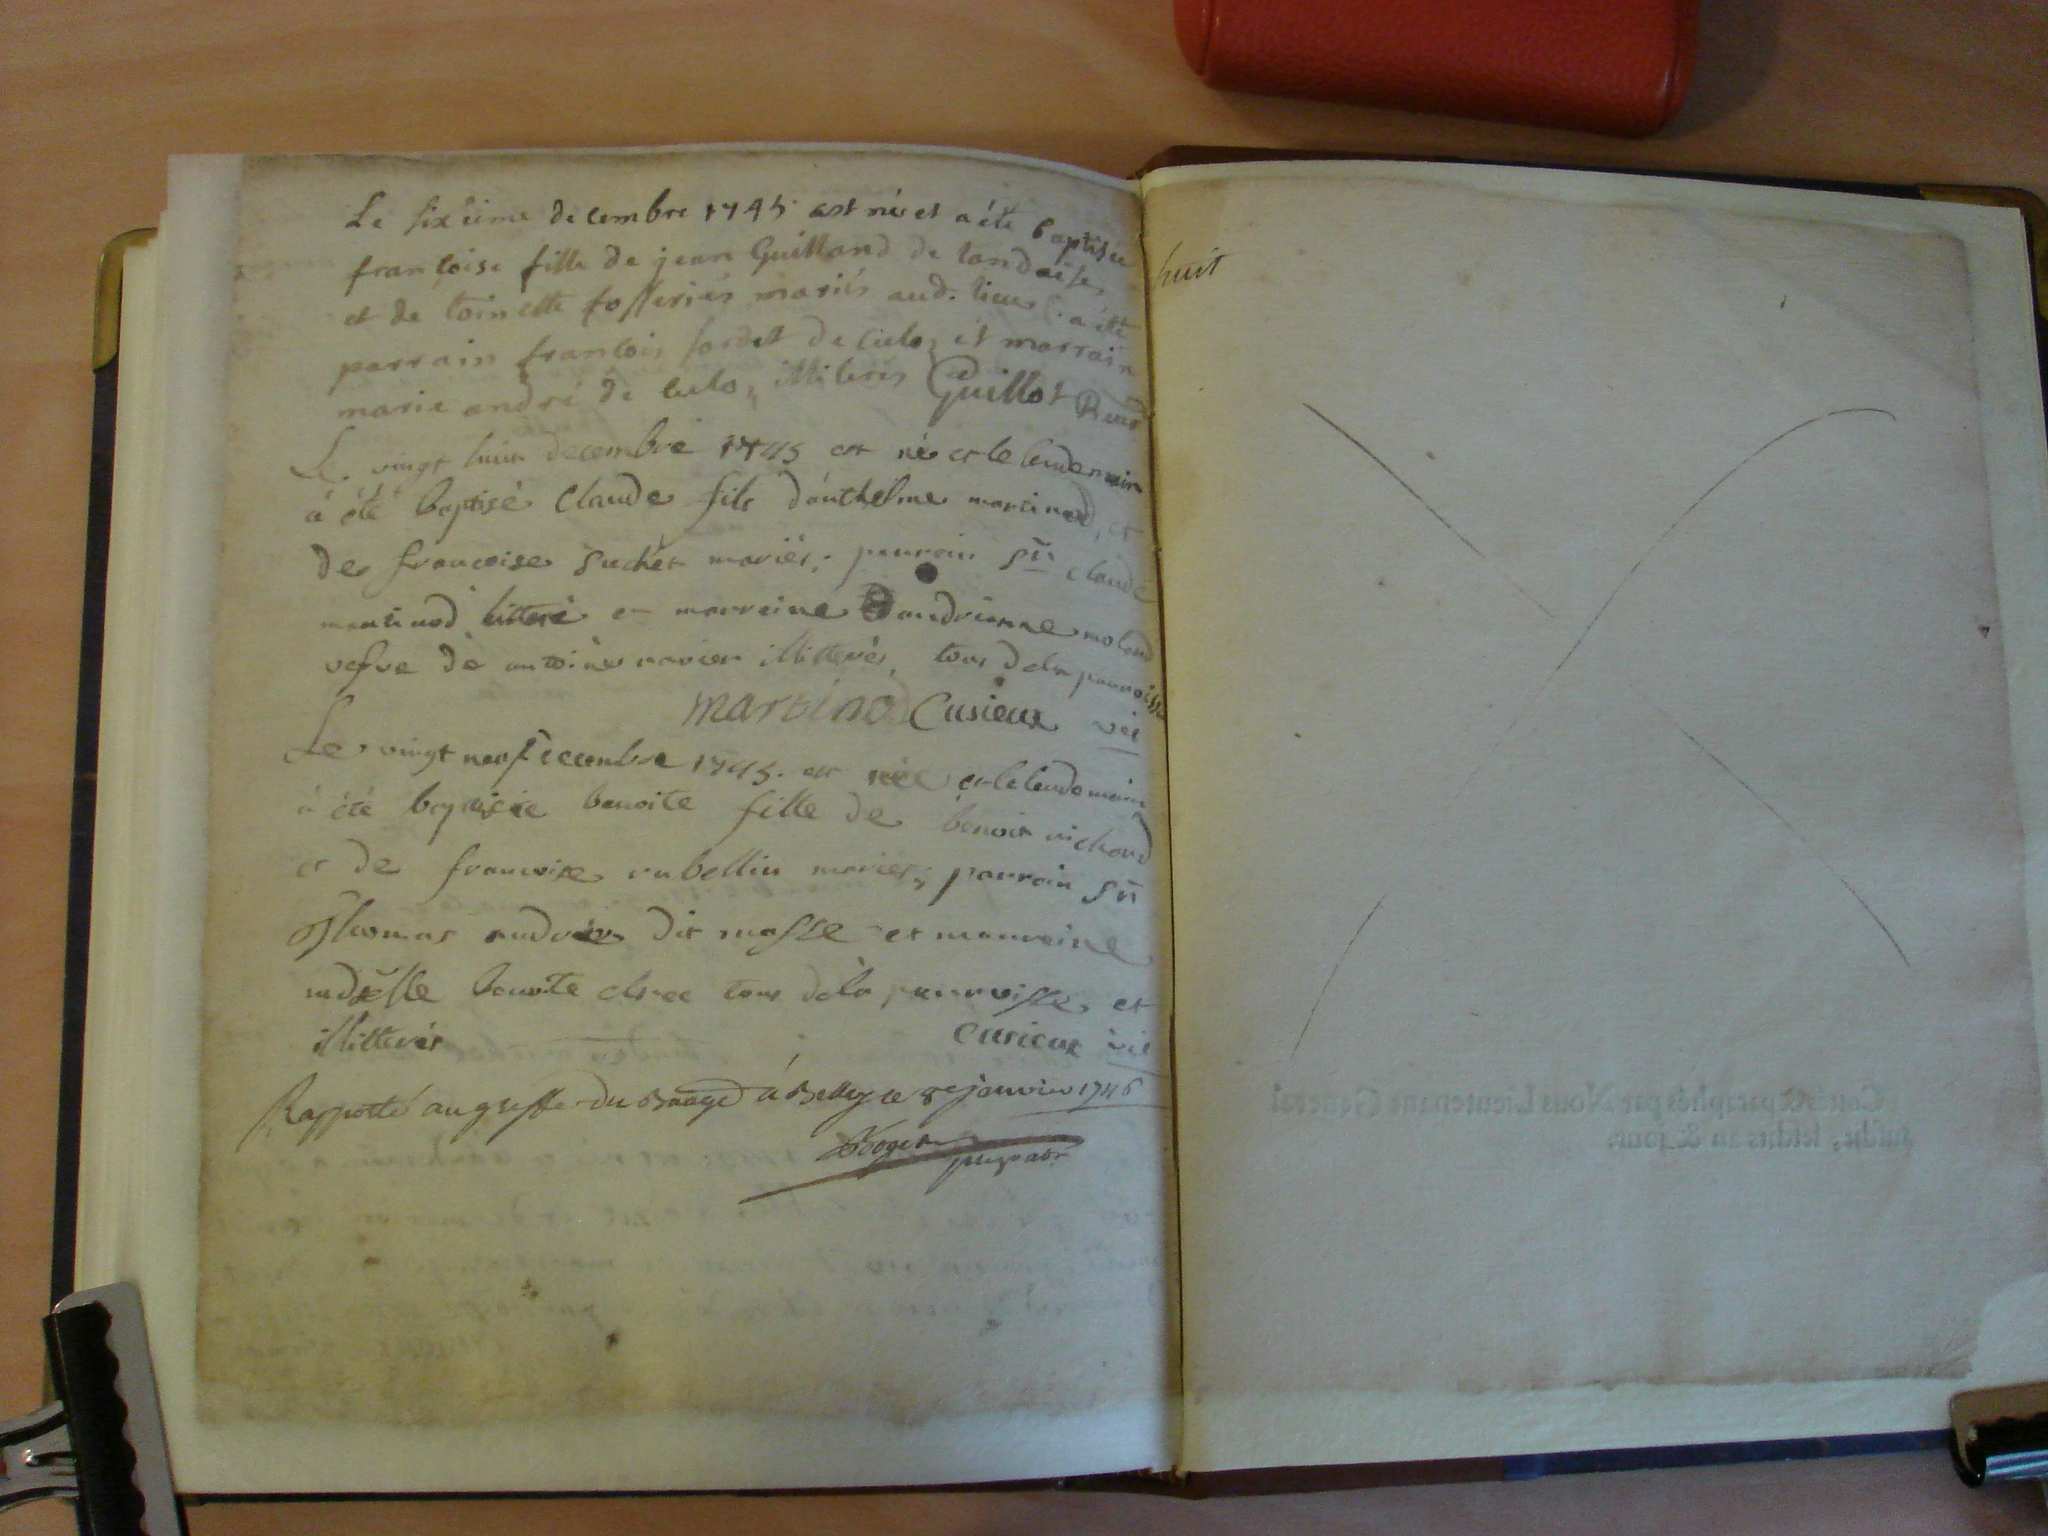 Le sixieme decembre 1745 est née et a été baptisée
françoise fille de jean Guilland de landaise
et de toinette fosseriés mariés aud. lieu a été
parrain françois sordet de culo, et marrain
marie andré de culo, illiterés Guillot
Le vingt huit decembre 1745 est né et le lendemain
à été baptisé Claude fils d'anthelme martinod, et
de francoise suchet mariés; parrain sr. claude
martinod litteré et marreine andrienne
vefve de antoine illitterés, tous de la parroisse
martinod Cusieux vic
Le vingt neuf decembre 1745. est née et le lendemain
à été baptisée benoite fille de benoit richard
et de francoise rubellin mariés; parrain sr.
Thomas dit masse et marreine
benoite tous de la parroisse et
illitterés Cusieux vic
Rapporté au greffe du Baage à Belley ce 8e janvier 1746
huit
Cottés & paraphés par Nous Lieutenant General
susdit, lesdits an & jour.